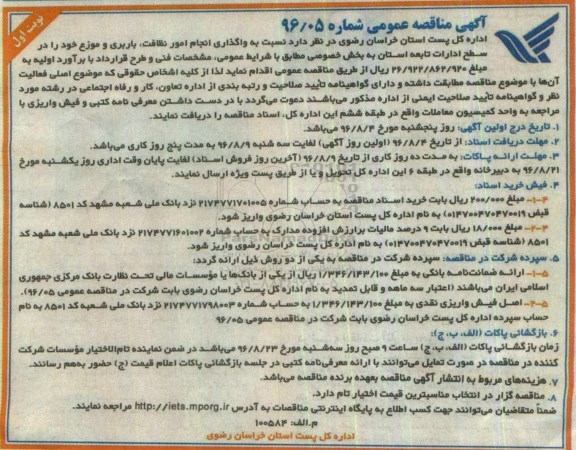 نوبت اول
آگهی مناقصه عمومی شماره ۹۶/۰۵
اداره کل پست استان خراسان رضوی در نظر دارد نسبت به واگذاری انجام امور نظافت، باربری و موزع خود را در
سطح ادارات تابعه استان به بخش خصوصی مطابق با شرایط عمومی، مشخصات فنی و طرح قرارداد با برآورد اولیه به
مبلغ ۲۶/۹۲۲/۸۶۲/۹۲۰ ریال از طریق مناقصه عمومی اقدام نماید لذا از کلیه اشخاص حقوقی که موضوع اصلی فعالیت
آن‌ها با موضوع مناقصه مطابقت داشته و دارای گواهینامه تأیید صلاحیت و رتبه بندی از اداره تعاون، کار و رفاه اجتماعی در رشته مورد
نظر و گواهینامه تأیید صلاحیت ایمنی از اداره مذکور می‌باشند دعوت می‌گردد با در دست داشتن معرفی نامه کتبی و فیش واریزی با
مراجعه به واحد کمیسیون معاملات واقع در طبقه ششم این اداره کل، اسناد مناقصه را دریافت نمایند.
۱. تاریخ درج اولین آگهی: روز پنجشنبه مورخ ۹۶/۸/۴ می‌باشد.
۲. مهلت دریافت اسناد: از تاریخ ۹۶/۸/۴ (اولین روز آگهی) لغایت سه شنبه ۹۶/۸/۹ به مدت پنج روز کاری می‌باشد.
۳. مهلت ارائه پاکات: به مدت ده روز کاری از تاریخ ۹۶/۸/۹ (آخرین روز فروش اسناد) لغایت پایان وقت اداری روز یکشنبه مورخ
۹۶/۸/۲۱ به دبیرخانه واقع در طبقه ۶ این اداره کل تحویل و یا از طریق پست ویژه ارسال نمایند.
۴. فیش خرید اسناد:
۴-۱- مبلغ ۲۰۰/۰۰۰ ریال بابت خرید اسناد مناقصه به حساب شماره ۲۱۷۴۷۷۱۷۰۱۰۰۵ نزد بانک ملی شعبه مشهد کد ۸۵۰۱ (شناسه
قبض ۰۱۴۷۰۰۴۷۰۴۷۰۰۱۹) به نام اداره کل پست استان خراسان رضوی واریز شود.
۴-۲- مبلغ ۱۸/۰۰۰ ریال بابت ۹ درصد مالیات برارزش افزوده مدارک به حساب شماره ۲۱۷۴۷۷۱۶۰۱۰۰۲ نزد بانک ملی شعبه مشهد کد
۸۵۰۱ (شناسه قبض ۰۱۴۷۰۰۴۷۰۴۷۰۰۱۹) به نام اداره کل پست خراسان رضوی واریز شود.
۵. سپرده شرکت در مناقصه: سپرده شرکت در مناقصه به یکی از دو روش ذیل ارائه گردد:
۵-۱- ارائه ضمانتنامه بانکی به مبلغ ۱/۳۴۶/۱۴۳/۱۰۰ ریال از یکی از بانک‌ها یا مؤسسات مالی تحت نظارت بانک مرکزی جمهوری
اسلامی ایران می‌باشند (اعتبار سه ماهه و قابل تمدید به نام اداره کل پست خراسان رضوی بابت شرکت در مناقصه عمومی ۹۶/۰۵).
۵-۲- اصل فیش واریزی نقدی به مبلغ ۱/۳۴۶/۱۴۳/۱۰۰ به حساب شماره ۲۱۷۴۷۷۱۷۹۸۰۰۳ نزد بانک ملی شعبه کد ۸۵۰۱ به نام
حساب سپرده اداره کل پست خراسان رضوی بابت شرکت در مناقصه عمومی ۹۶/۰۵
۶. بازگشائی پاکات (الف، ب، ج):
زمان بازگشائی پاکات (الف، ب، ج) ساعت ۹ صبح روز سه‌شنبه مورخ ۹۶/۸/۲۳ می‌باشد در ضمن نماینده تام‌الاختیار مؤسسات شرکت
کننده در مناقصه در صورت تمایل می‌توانند با ارائه معرفی‌نامه کتبی در جلسه بازگشائی پاکات اعلام قیمت (ج) حضور به‌هم رسانند.
۷. هزینه‌های مربوط به انتشار آگهی مناقصه بعهده برنده مناقصه می‌باشد.
۸. مناقصه گزار در انتخاب مناسبترین قیمت اختیار تام دارد.
ضمناً متقاضیان می‌توانند جهت کسب اطلاع به پایگاه اینترنتی مناقصات به آدرس http://iets.mporg.ir مراجعه نمایند.
م.الف: ۱۰۰۵۸۴
اداره کل پست استان خراسان رضوی